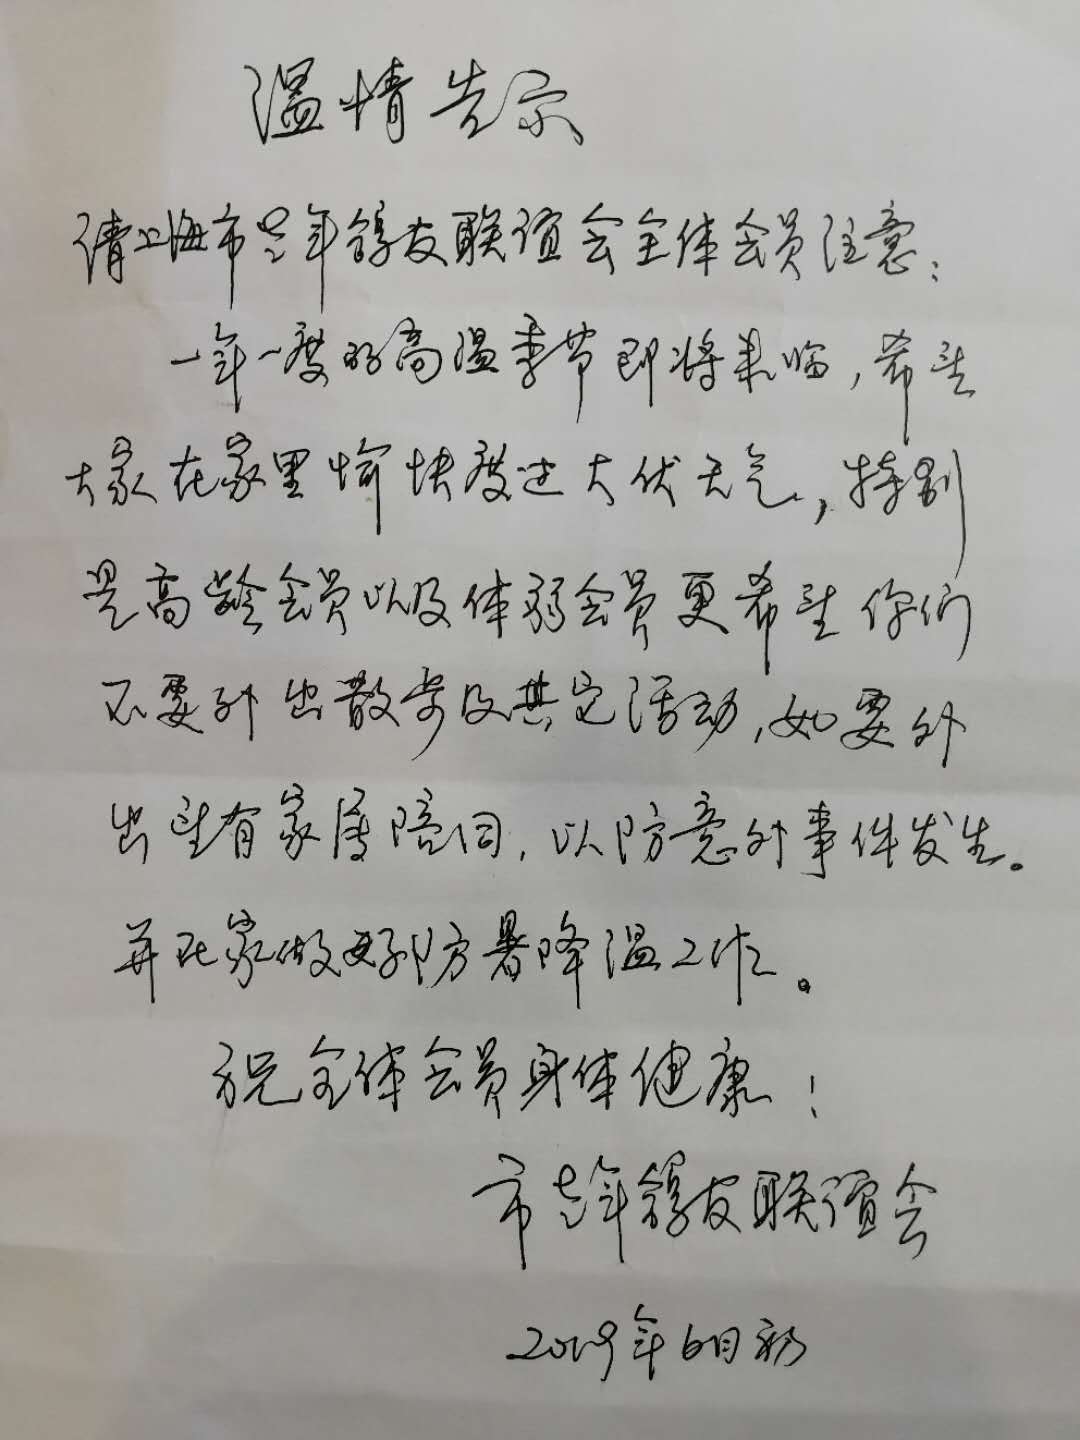 温情告示
请上海市老年友联谊会全体会员注意：
一年一度的高温季节即将来临，希望
大家在家里愉快度过大伏天气，特别
是高龄会员以及体弱会员更希望你们
不要外出散步及其它活动，如要外
出望有家属陪同，以防意外事件发生。
并在家做好防暑降温工作。
祝全体会员身体健康！
市老年友联谊会
2019年6月初